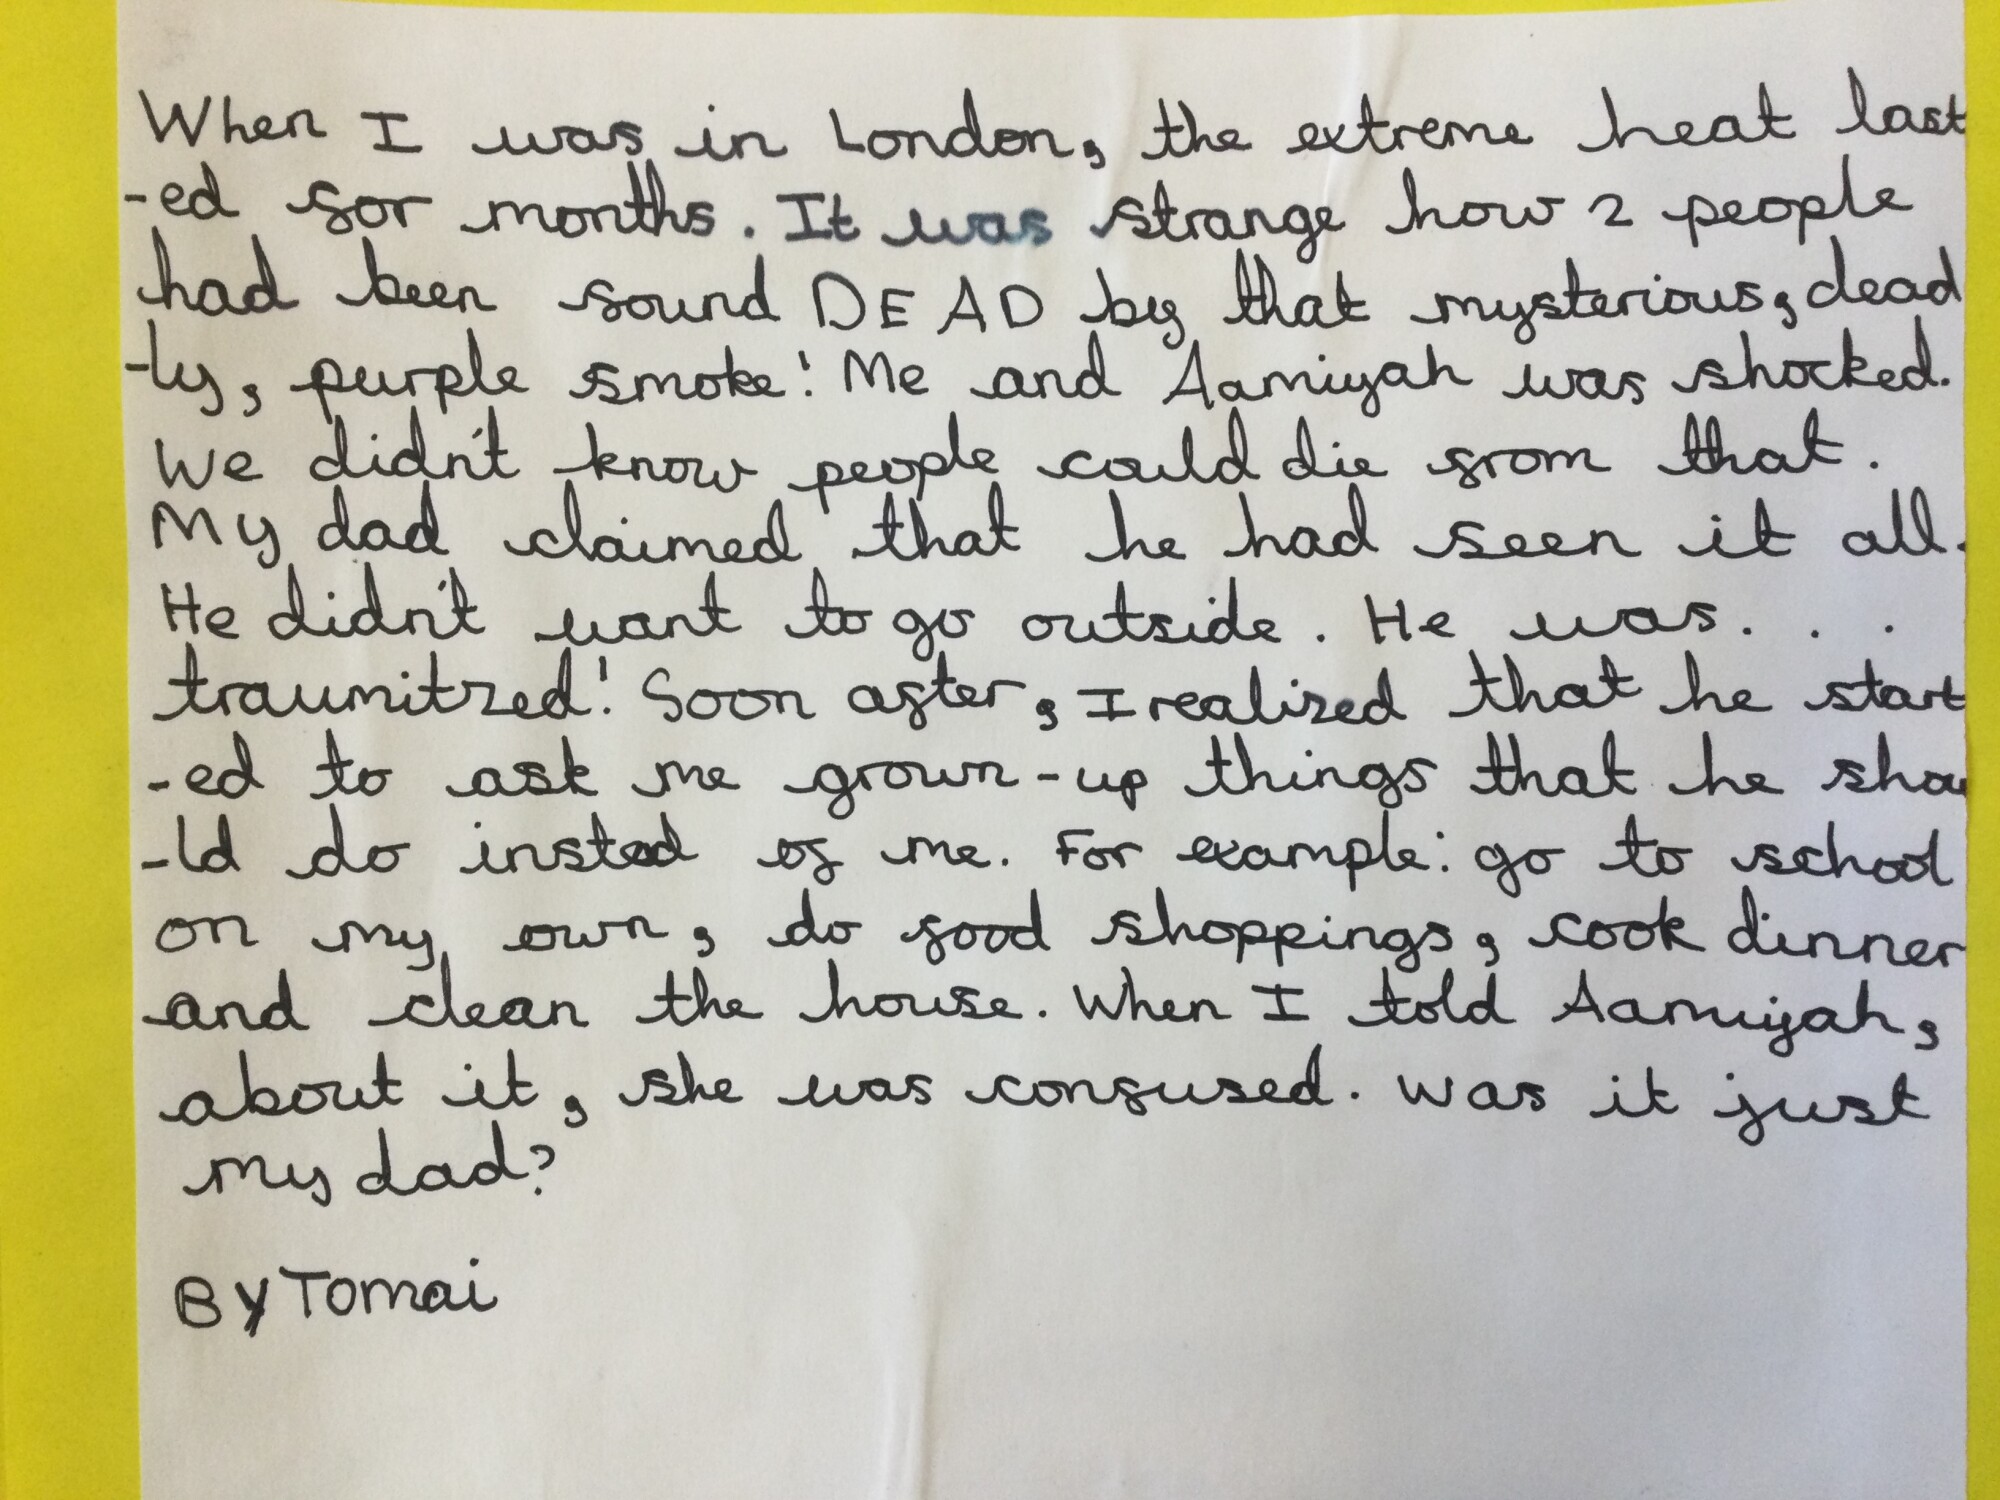 When I was in London, the extreme heat last
-ed for months. It was strange how 2 people
had been found DEAD by that mysterious, dead
-ly, purple smoke! Me and Aamiyah was shocked.
We didn't know people could die from that.
My dad claimed that he had seen it all.
He didn't want to go outside. He was...
traumitzed! Soon after, I realized that he start
-ed to ask me grown-up things that he shou
-ld do instead of me. For example: go to school
on my own, do food shoppings, cook dinner
and clean the house. When I told Aamiyah,
about it, she was confused. Was it just
my dad?
By Tomai